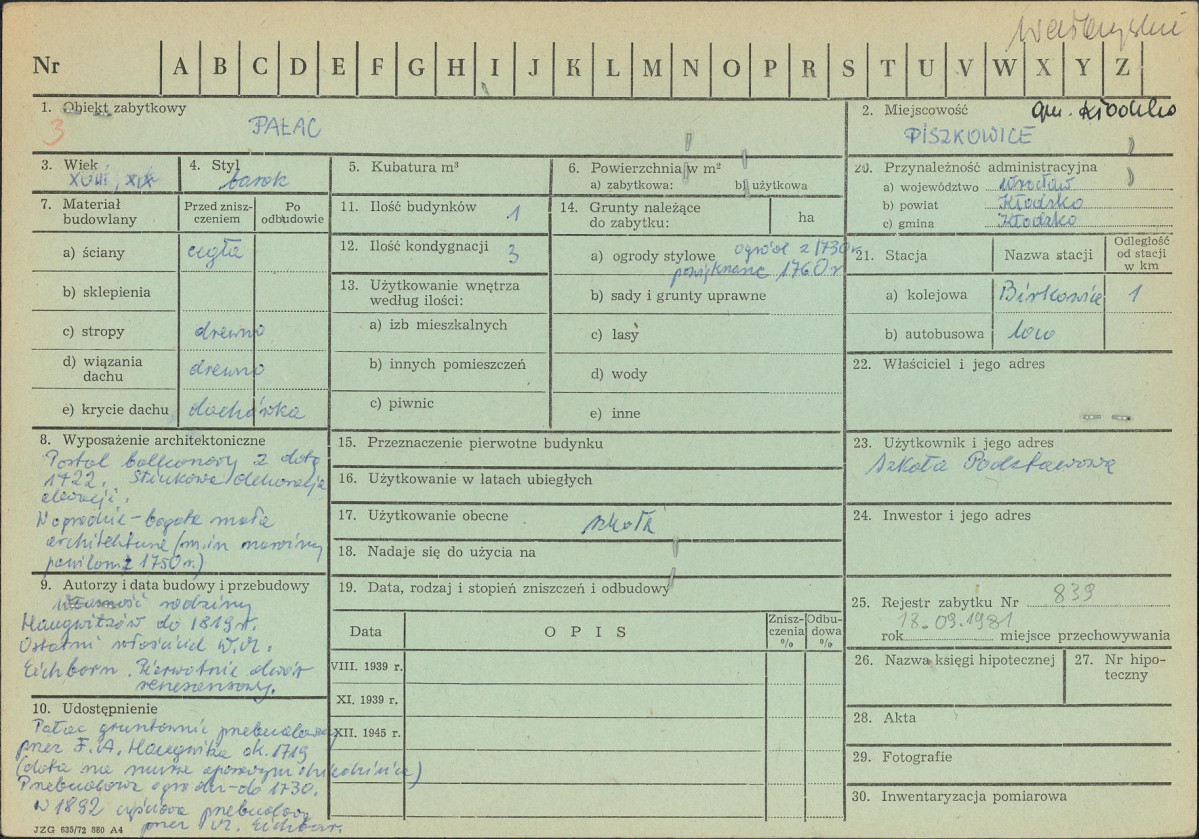 Wałbrzyskie
Nr A B C D E F G H I J K L M N O P R S T U V W X Y Z
1. Obiekt zabytkowy
3
PAŁAC
2. Miejscowość gm. Kłodzko
PISZKOWICE
3. Wiek
XVIII, XIX
4. Styl
barok
5. Kubatura m³
6. Powierzchnia w m²
a) zabytkowa: b) użytkowa
20. Przynależność administracyjna
a) województwo Wrocław
b) powiat Kłodzko
c) gmina Kłodzko
7. Materiał budowlany
Przed zniszczeniem
Po odbudowie
a) ściany cegła
b) sklepienia
c) stropy drewno
d) wiązania dachu drewno
e) krycie dachu dachówka
11. Ilość budynków 1
12. Ilość kondygnacji 3
13. Użytkowanie wnętrza według ilości:
a) izb mieszkalnych
b) innych pomieszczeń
c) piwnic
14. Grunty należące do zabytku: ha
a) ogrody stylowe ogród z 1730 r.
1760 r
b) sady i grunty uprawne
c) lasy
d) wody
e) inne
21. Stacja
Nazwa stacji
Odległość od stacji w km
a) kolejowa 1
b) autobusowa loco
22. Właściciel i jego adres
8. Wyposażenie architektoniczne
Portal balkonowy z datą
1722. Stiukowa dekoracja
elewacji.
W ogrodzie – bogata mała
architektura (m.in narożny
pawilon z 1750 r.)
15. Przeznaczenie pierwotne budynku
16. Użytkowanie w latach ubiegłych
17. Użytkowanie obecne szkoła
18. Nadaje się do użycia na
19. Data, rodzaj i stopień zniszczeń i odbudowy
Data
OPIS
Zniszczenia %
Odbudowa %
VIII. 1939 r.
XI. 1939 r.
XII. 1945 r.
23. Użytkownik i jego adres
Szkoła Podstawowa
24. Inwestor i jego adres
25. Rejestr zabytku Nr 839
rok 18.09.1981 miejsce przechowywania
26. Nazwa księgi hipotecznej
27. Nr hipoteczny
28. Akta
29. Fotografie
30. Inwentaryzacja pomiarowa
9. Autorzy i data budowy i przebudowy
rodziny
Haugwitzów do 1819 r.
Ostatni właściciel W.M.
Eichborn. Pierwotnie dwór
renesansowy.
10. Udostępnienie
Pałac gruntownie przebudowany
przez F.A. Haugwitza ok. 1719
(data na murze oporowym dziedzińca)
Przebudowa ogrodu – do 1730.
W 1892 częściowa przebudowa
przez M. Eichbor.
JZG 635/72 880 A4